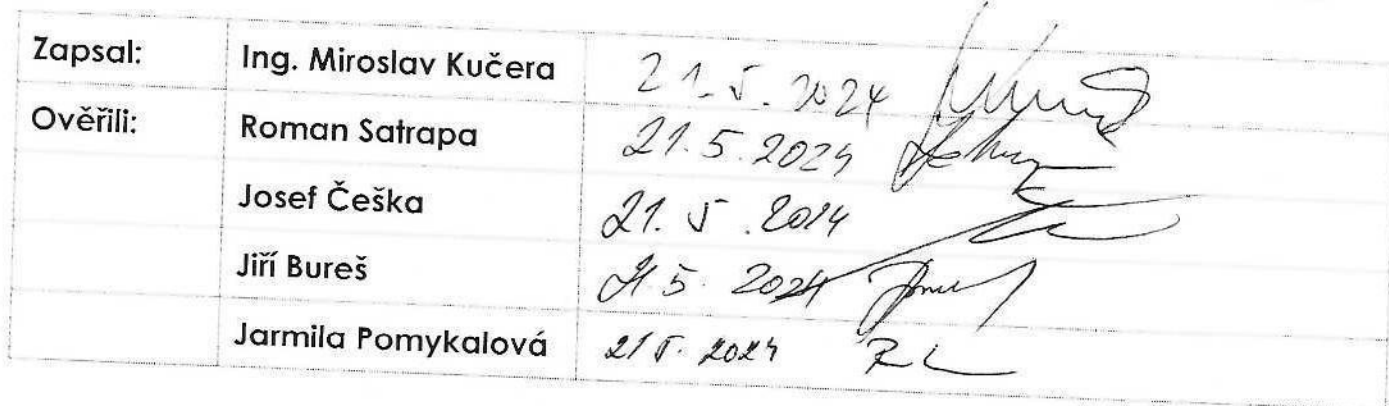 Zapsal: Ing. Miroslav Kučera 21.5.2024
Ověřili: Roman Satrapa 21.5.2024
Josef Češka 21.5.2024
Jiří Bureš 21.5.2024
Jarmila Pomykalová 21.5.2024